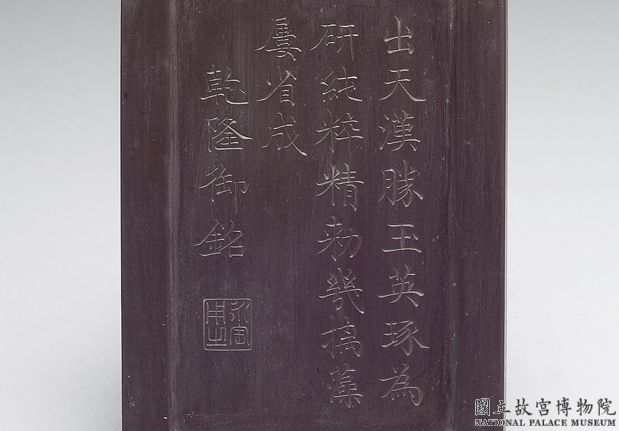 出天漢勝玉英琢為
研純粹精勑幾摛藻
屢省成
乾隆御銘
永寶用之
國立故宮博物院
NATIONAL PALACE MUSEUM